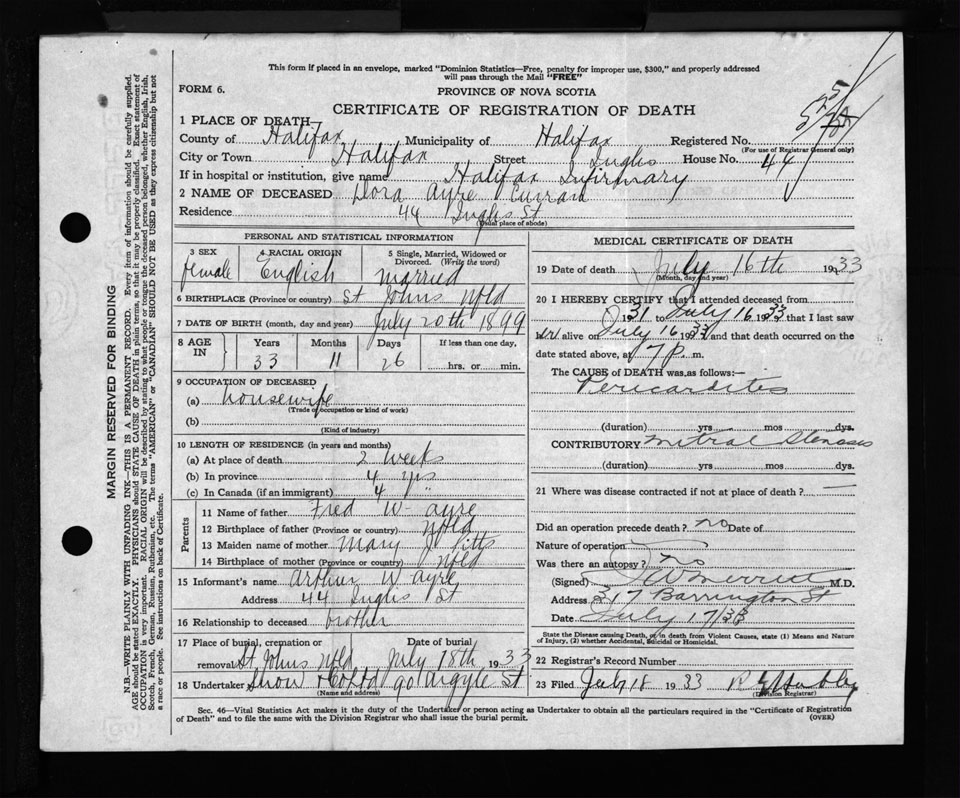 This form if placed in an envelope, marked "Dominion Statistics—Free, penalty for improper use, $300," and properly addressed
will pass through the Mail "FREE"
FORM 6.
PROVINCE OF NOVA SCOTIA
CERTIFICATE OF REGISTRATION OF DEATH
1 PLACE OF DEATH—
County of Halifax Municipality of Halifax Registered No. 525
(For use of Registrar General only)
City or Town Halifax Street Inglis House No. 44
If in hospital or institution, give name Halifax Infirmary
2 NAME OF DECEASED Dora Ayre Currard
Residence 44 Inglis St
(Usual place of abode)
PERSONAL AND STATISTICAL INFORMATION
3 SEX female
4 RACIAL ORIGIN English
5 Single, Married, Widowed or Divorced. (Write the word) Married
6 BIRTHPLACE (Province or country) St Johns Nfld
7 DATE OF BIRTH (month, day and year) July 20th 1899
8 AGE IN Years 33 Months 11 Days 26 If less than one day, hrs. or min.
9 OCCUPATION OF DECEASED
(a) housewife
(Trade, occupation or kind of work)
(b)
(Kind of industry)
10 LENGTH OF RESIDENCE (in years and months)
(a) At place of death 2 weeks
(b) In province 4 yrs
(c) In Canada (if an immigrant) 4 "
Parents
11 Name of father Fred W. Ayre
12 Birthplace of father (Province or country) Nfld
13 Maiden name of mother Mary J Pitts
14 Birthplace of mother (Province or country) Nfld
15 Informant's name Arthur W Ayre
Address 44 Inglis St
16 Relationship to deceased brother
17 Place of burial, cremation or removal St Johns Nfld Date of burial July 18th 1933
18 Undertaker Snow & Co Ltd 90 Argyle St
(Name and address)
MEDICAL CERTIFICATE OF DEATH
19 Date of death July 16th 1933
(Month, day and year)
20 I HEREBY CERTIFY that I attended deceased from
1931 July 16 1933 that I last saw
her alive on July 16 1933 and that death occurred on the
date stated above, at 7 p. m.
The CAUSE OF DEATH was as follows:—
Pericarditis
(duration) yrs mos dys.
CONTRIBUTORY Mitral Stenosis
(duration) yrs. mos dys.
21 Where was disease contracted if not at place of death?
Did an operation precede death? no Date of
Nature of operation
Was there an autopsy? no
(Signed) M.D.
Address 317 Barrington St
Date July 17/33
State the Disease causing Death, or in death from Violent Causes, state (1) Means and Nature
of Injury, (2) whether Accidental, Suicidal or Homicidal.
22 Registrar's Record Number
23 Filed July 18 1933
(Division Registrar)
Sec. 46—Vital Statistics Act makes it the duty of the Undertaker or person acting as Undertaker to obtain all the particulars required in the "Certificate of Registration
of Death" and to file the same with the Division Registrar who shall issue the burial permit.
(OVER)
MARGIN RESERVED FOR BINDING
N.B.—WRITE PLAINLY WITH UNFADING INK—THIS IS A PERMANENT RECORD. Every item of information should be carefully supplied.
AGE should be stated EXACTLY. PHYSICIANS should STATE CAUSE OF DEATH in plain terms, so that it may be properly classified. Exact statement of
OCCUPATION is very important. RACIAL ORIGIN will be described by stating to what people or tongue the deceased person belonged, whether English, Irish,
Scotch, French, German, Russian, Ruthenian, etc. The terms "AMERICAN" or "CANADIAN" SHOULD NOT BE USED as they express citizenship but not
a race or people. See instructions on back of Certificate.